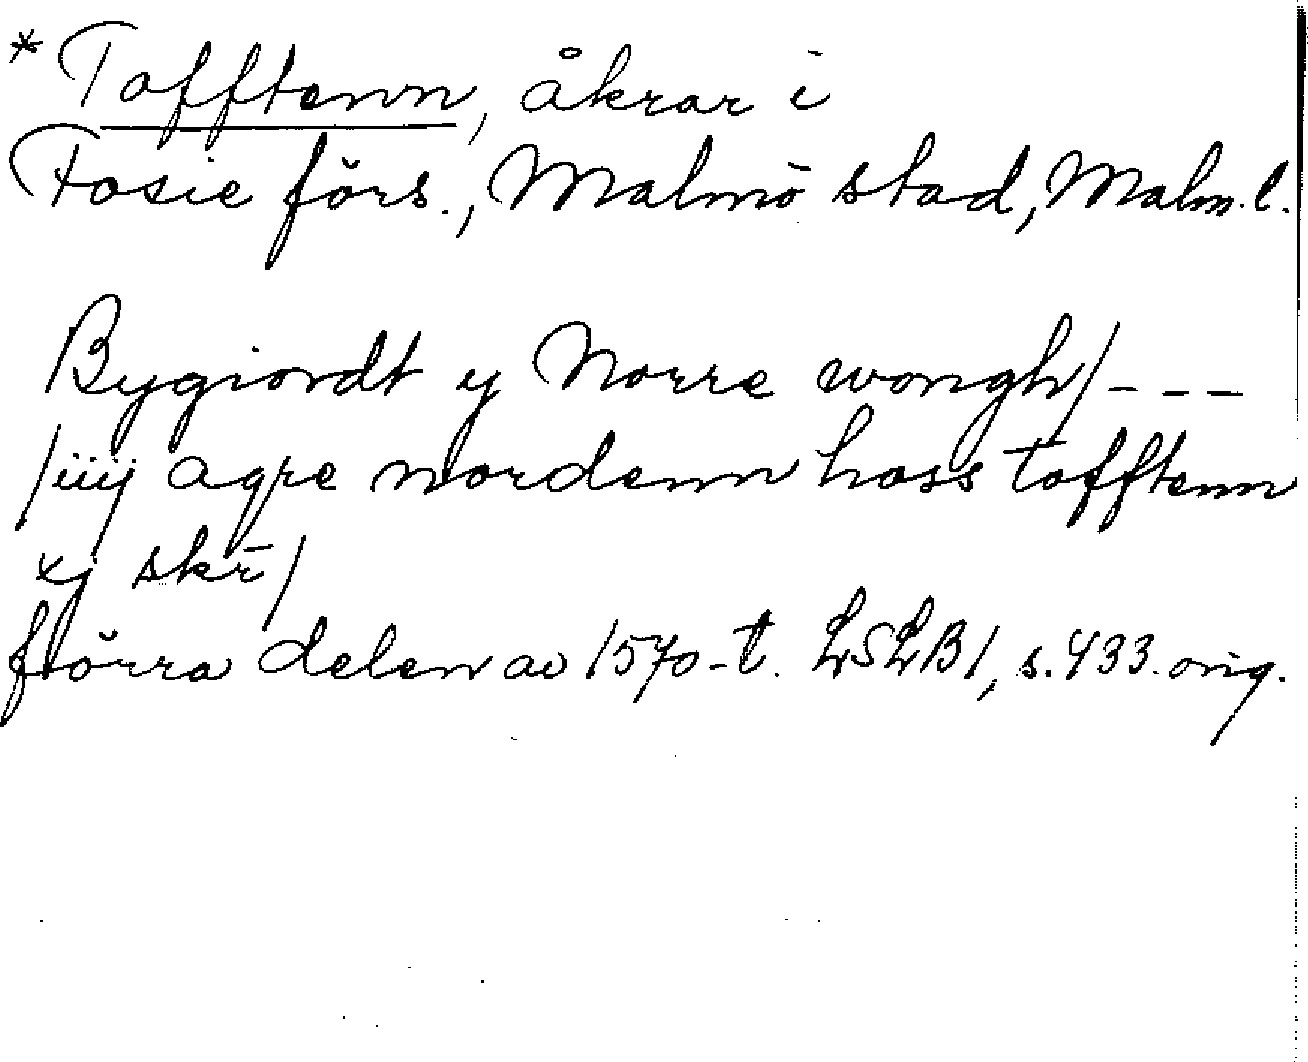 *Tofftenn, åkrar i
Fosie förs., Malmö stad, Malm.l.
Bygiordt y Norre wongh/ - - -
/iiij agre nordenn hoss tofftenn
xj skr̄/
förra delen av 1570-t. LSLB1, s.433.orig.